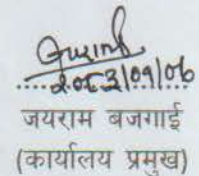 २०८३/०१/०६
जयराम बजगाई
(कार्यालय प्रमुख)